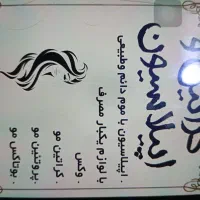 کراتین و
اپیلاسیون
. اپیلاسیون با موم دائم وطبیعی
با لوازم یکبار مصرف
. وکس
. کراتین مو
. پروتئین مو
. بوتاکس مو